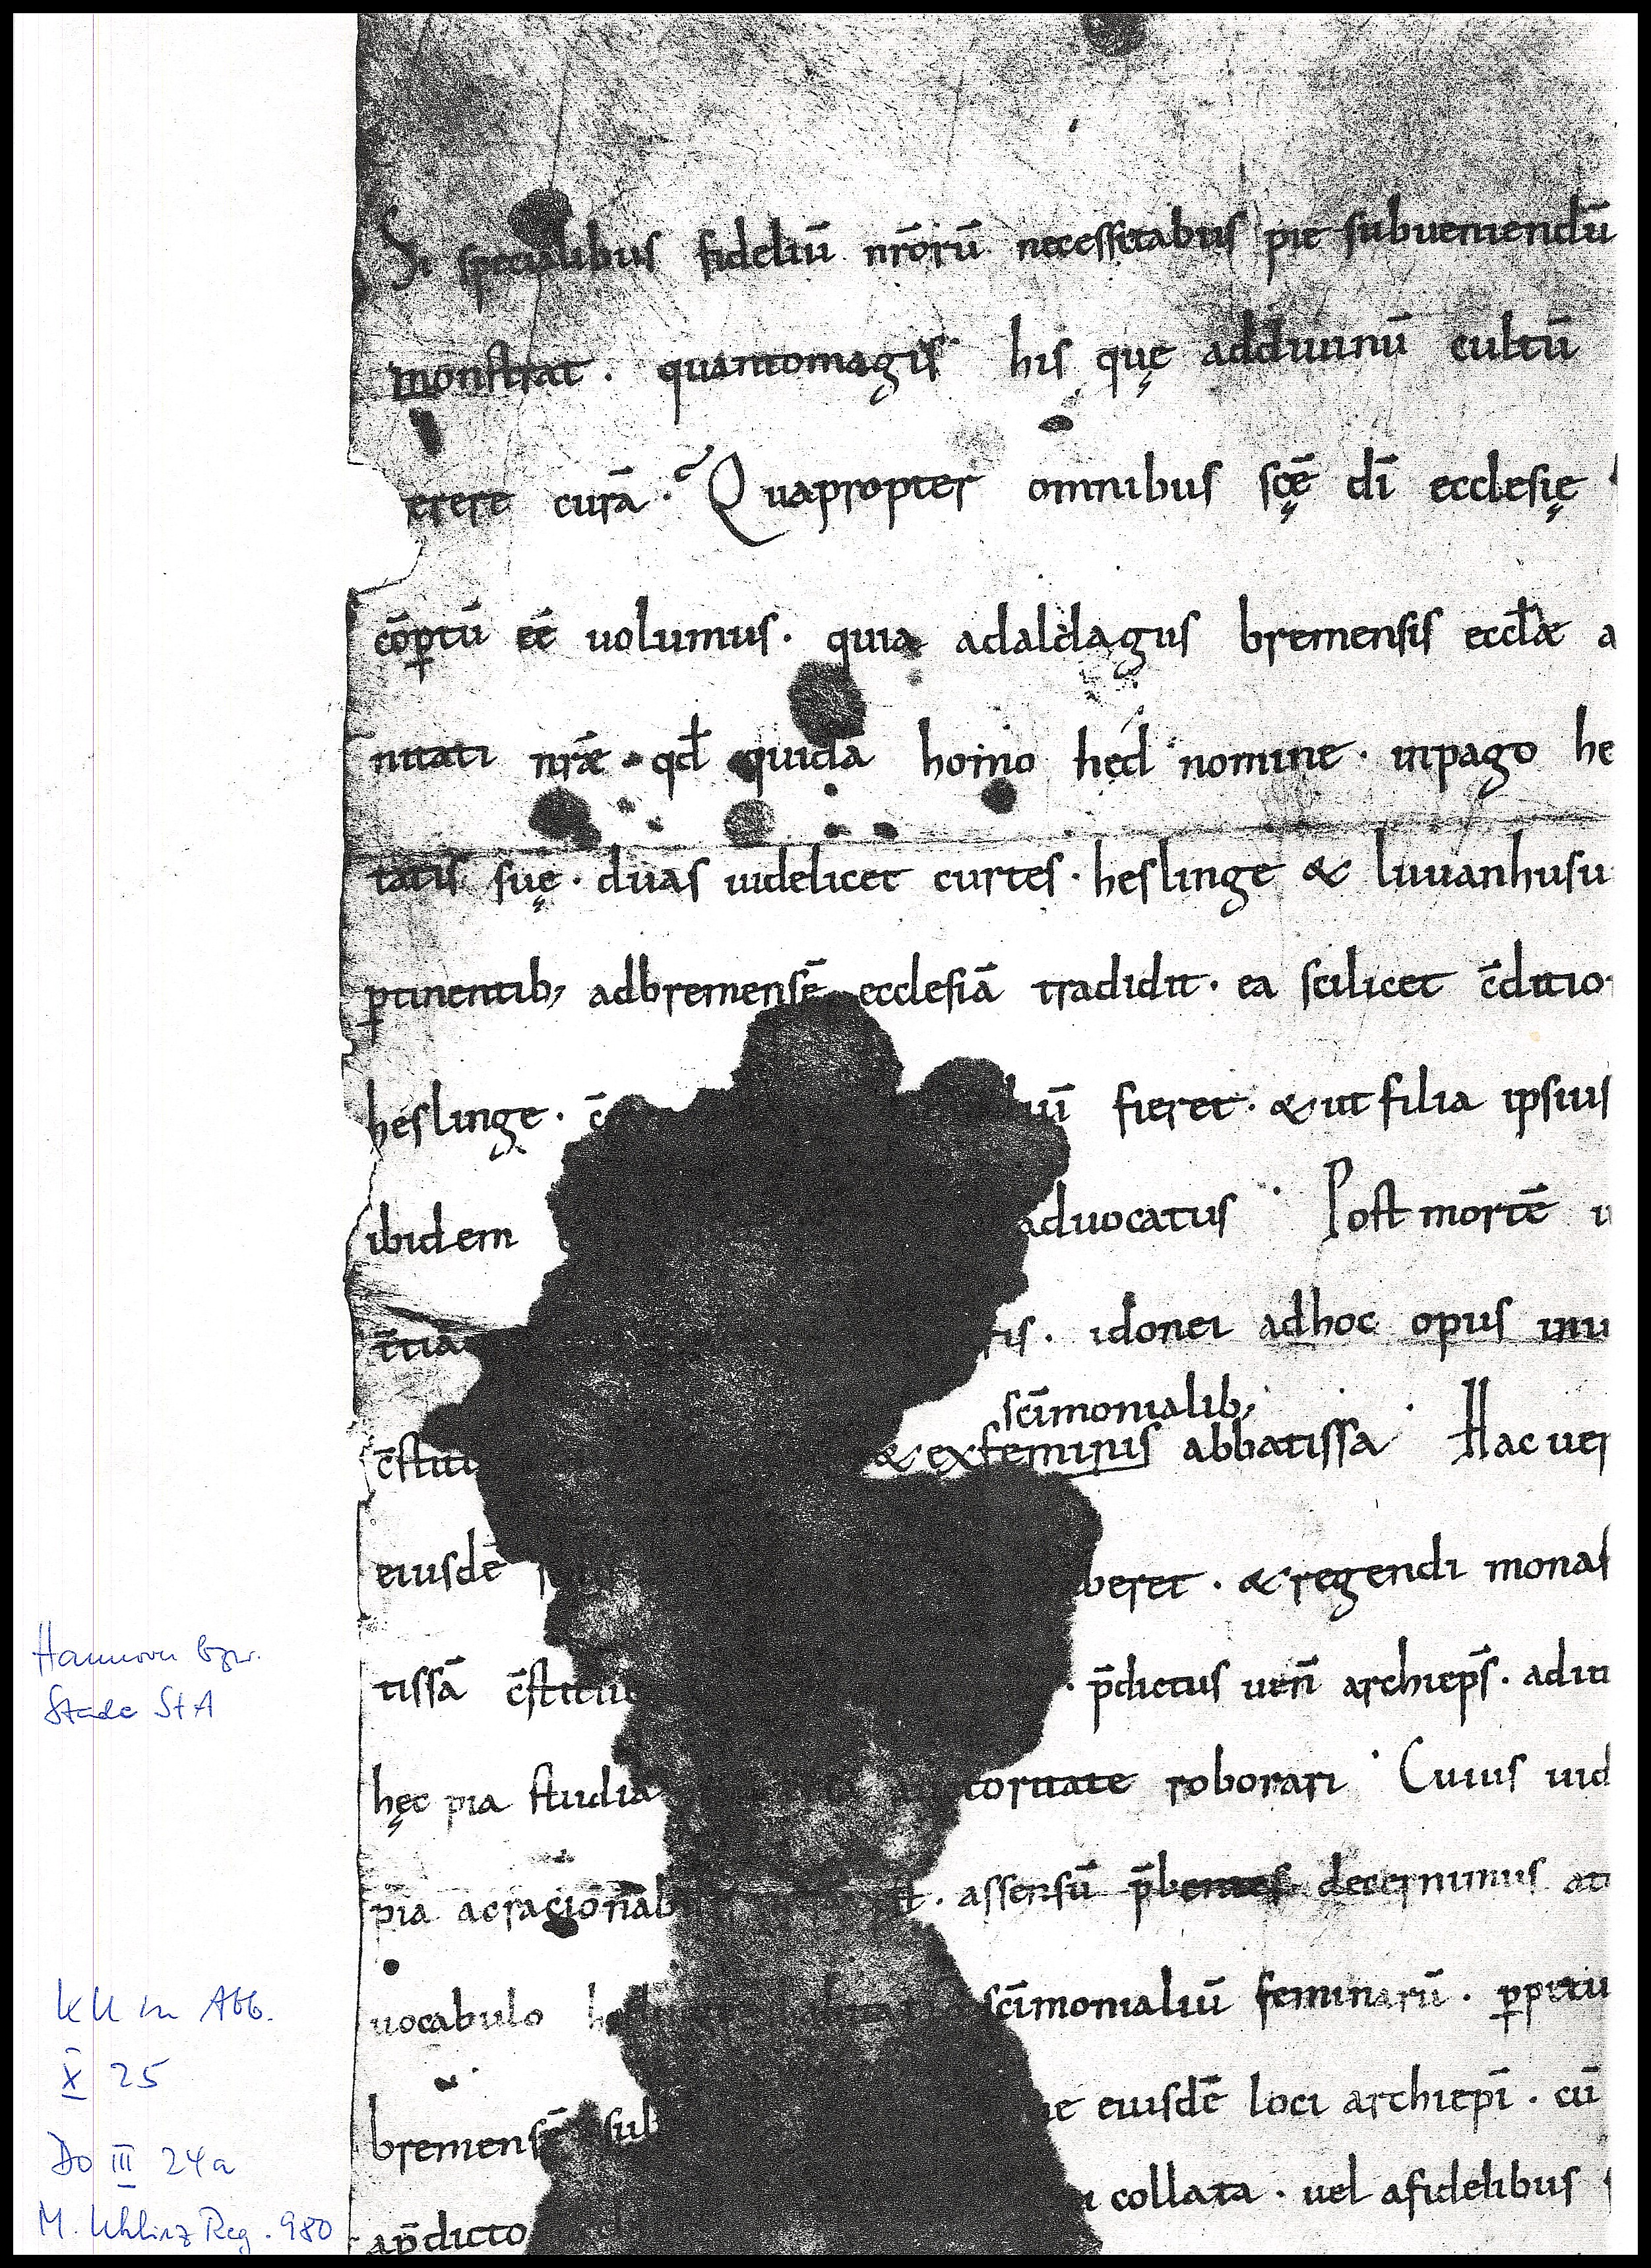 Si specialibus fideliū nr̄orū necessitabus pie subueniendū
monstrat · quantomagis his quę addiuinū cultū
erere curā · Quapropter omnibus scę̄ dī ecclesię
cōꝑtū eē uolumus · quia adaldagus bremensis eccl̄æ a
nitati nr̄æ · qd̄ quidā homo hed nomine · inpago he
tatis suę · duas uidelicet curtes · heslinge & liuuanhusu
ꝑtinentib; adbremensē ecclesiā tradidit · ea scilicet c̄ditio
heslinge · c̄ iū fieret · & ut filia ipsius
ibidem aduocatus · Post mortē
t̄tiā ris · idonei adhoc opus inu
scīmonialib;
c̄stitu & exfeminis abbatissa · Hac uer
eiusdē beret · & regendi monas
tissā c̄stitu · p̄dictus ueñ archiep̄s · aditi
hęc pia studia toritate roborari · Cuius uid
pia acracionab · assensū p̄bentes decernimus at
uocabulo hes scīmonialiū feminarū · ꝑpetu
bremensē sub ne eiusdē loci archiep̄i · cū
ap̄dicto collata · uel afidelibus
Hannover bzw.
Stade StA
KU in Abb.
X 25
Do III 24a
M. Uhlirz Reg. 980